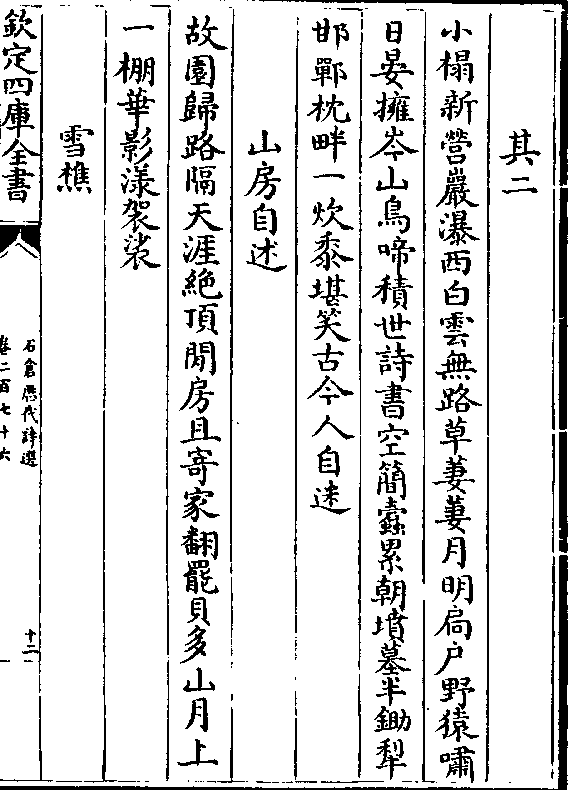 其二
小榻新營巖瀑西白雲無路草萋萋月明扃户野猿嘯
日晏擁衾山鳥啼積世詩書空簡蠹累朝墳墓半鋤犁
邯鄲枕畔一炊黍堪笑古今人自迷
山房自述
故園歸路隔天涯絶頂閒房且寄家翻罷貝多山月上
一棚華影漾袈裟
雪樵
欽定四庫全書
石倉歷代詩選
卷二百七十六
十二